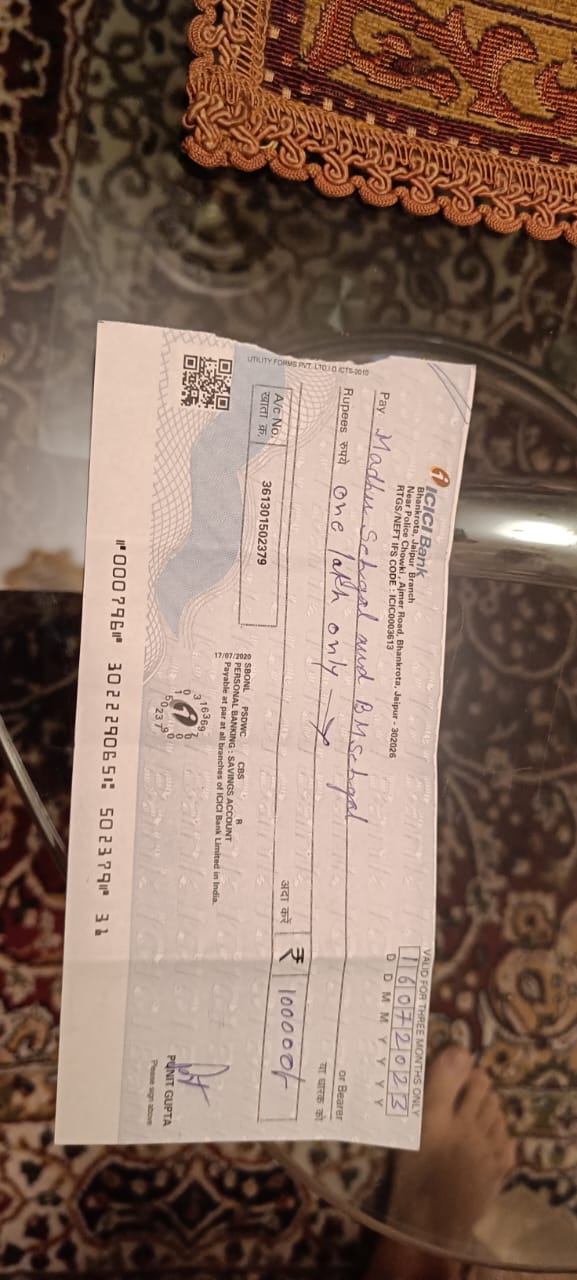 ICICI Bank
Bhankrota, Jaipur Branch
Near Police Chowki, Ajmer Road, Bhankrota, Jaipur - 302026
RTGS/NEFT IFS CODE : ICIC0003613
VALID FOR THREE MONTHS ONLY
16072023
D D M M Y Y Y Y
Pay Madhu Sehgal and B.M. Sehgal or Bearer
या धारक को
Rupees रुपये one lakh only
अदा करें ₹ 100000/-
A/c No. 361301502379
खाता क्र.
SBONL PSDWC CBS R
17/07/2020 PERSONAL BANKING : SAVINGS ACCOUNT
Payable at par at all branches of ICICI Bank Limited in India.
316369
PUNIT GUPTA
Please sign above
UTILITY FORMS PVT. LTD. CTS-2010
⑈000796⑈ 302229065⑆ 502379⑈ 31